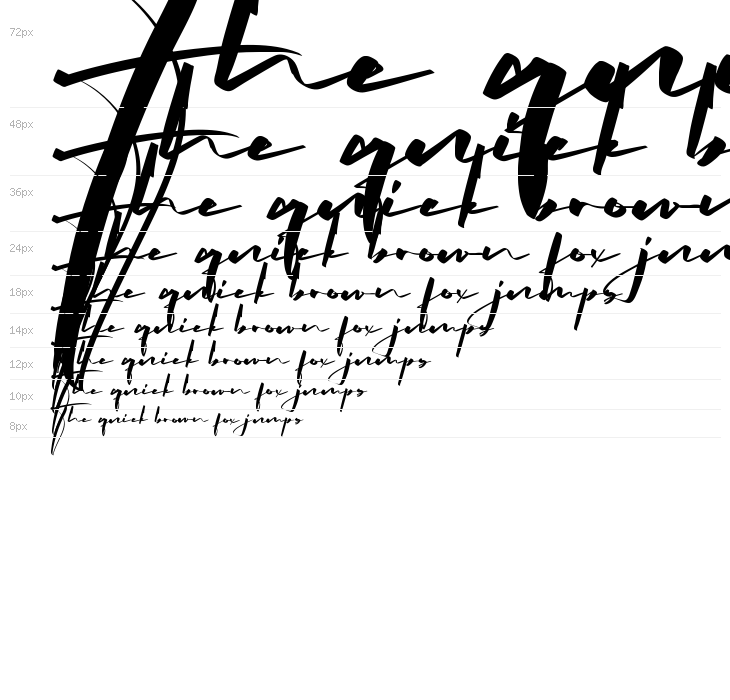 72px The qu
48px The quick b
36px The quick brown
24px The quick brown fox jum
18px The quick brown fox jumps
14px The quick brown fox jumps
12px The quick brown fox jumps
10px The quick brown fox jumps
8px The quick brown fox jumps